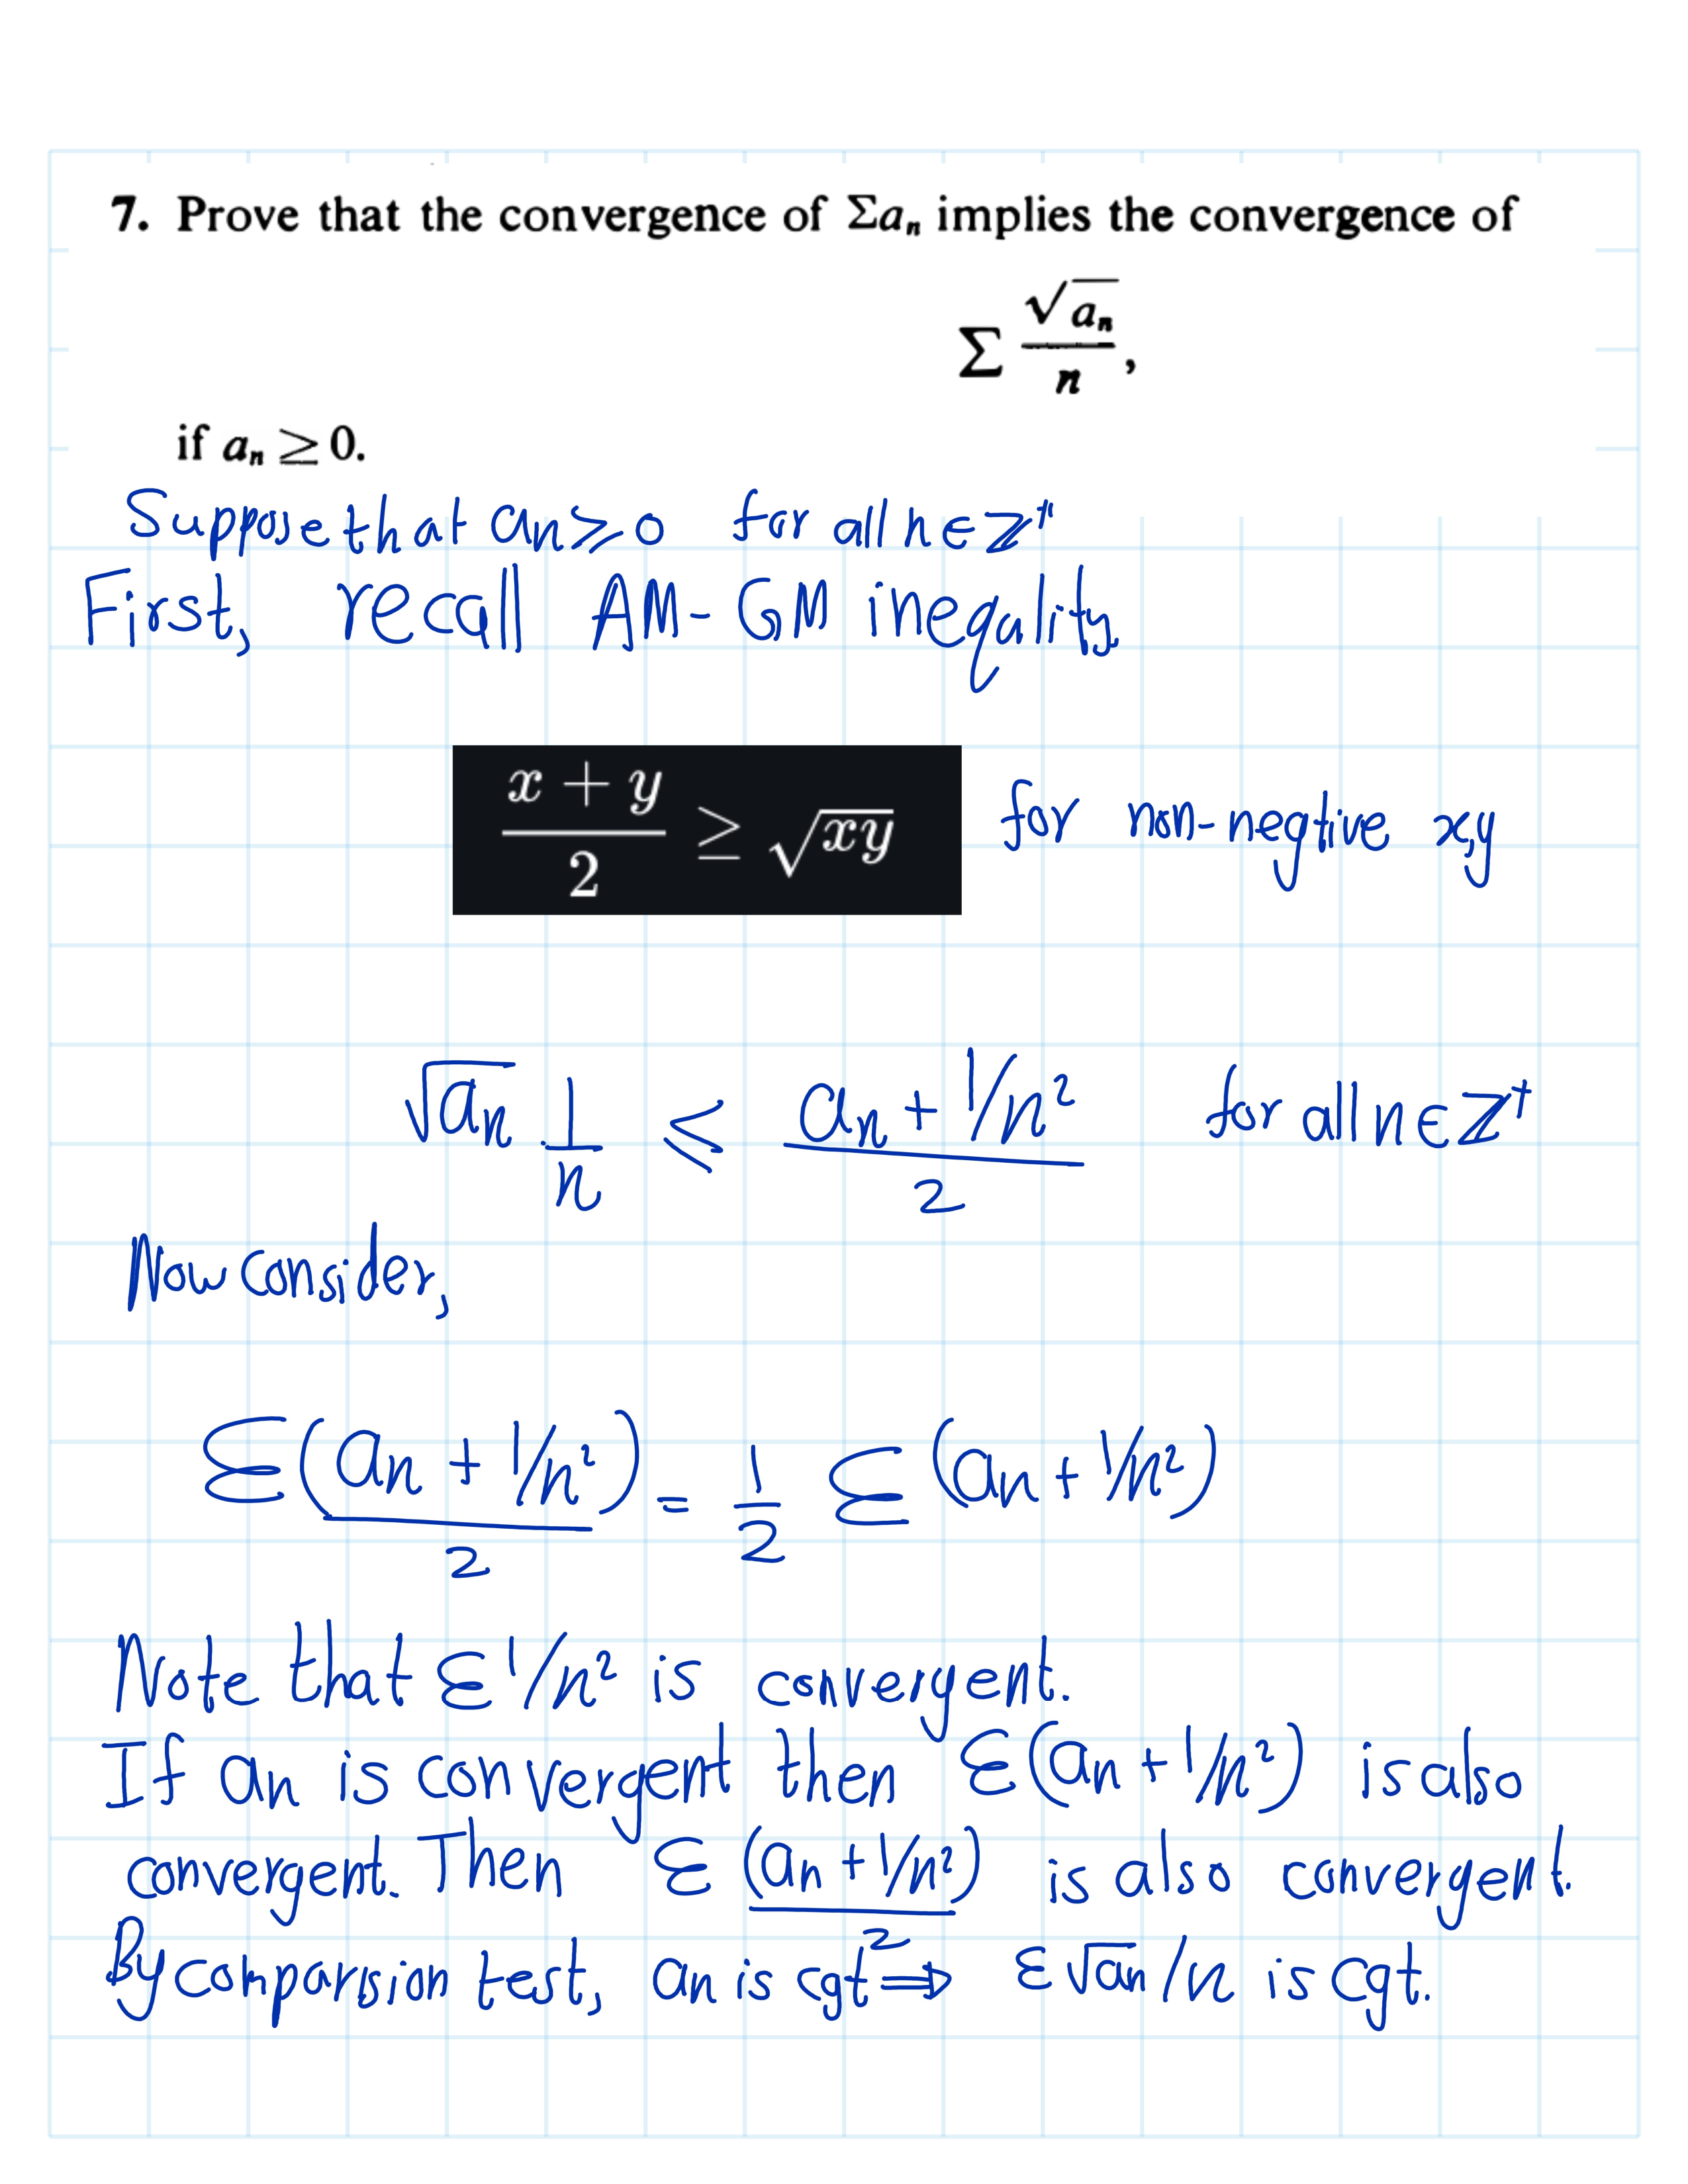 7. Prove that the convergence of Σaₙ implies the convergence of
Σ √aₙ / n ,
if aₙ ≥ 0.
Suppose that an ≥ 0 for all n ∈ Z⁺
First, recall AM-GM ineqality.
(x + y)/2 ≥ √xy for non-negtive x,y
√an 1/n ≤ (an + 1/n²)/2 for all n ∈ Z⁺
Now consider,
Σ (an + 1/n²)/2 = 1/2 Σ (an + 1/n²)
Note that Σ 1/n² is convergent.
If an is convergent then Σ(an + 1/n²) is also
convergent. Then Σ (an + 1/n²)/2 is also convergent.
By comparision test, an is cgt ⇒ Σ√an/n is cgt.